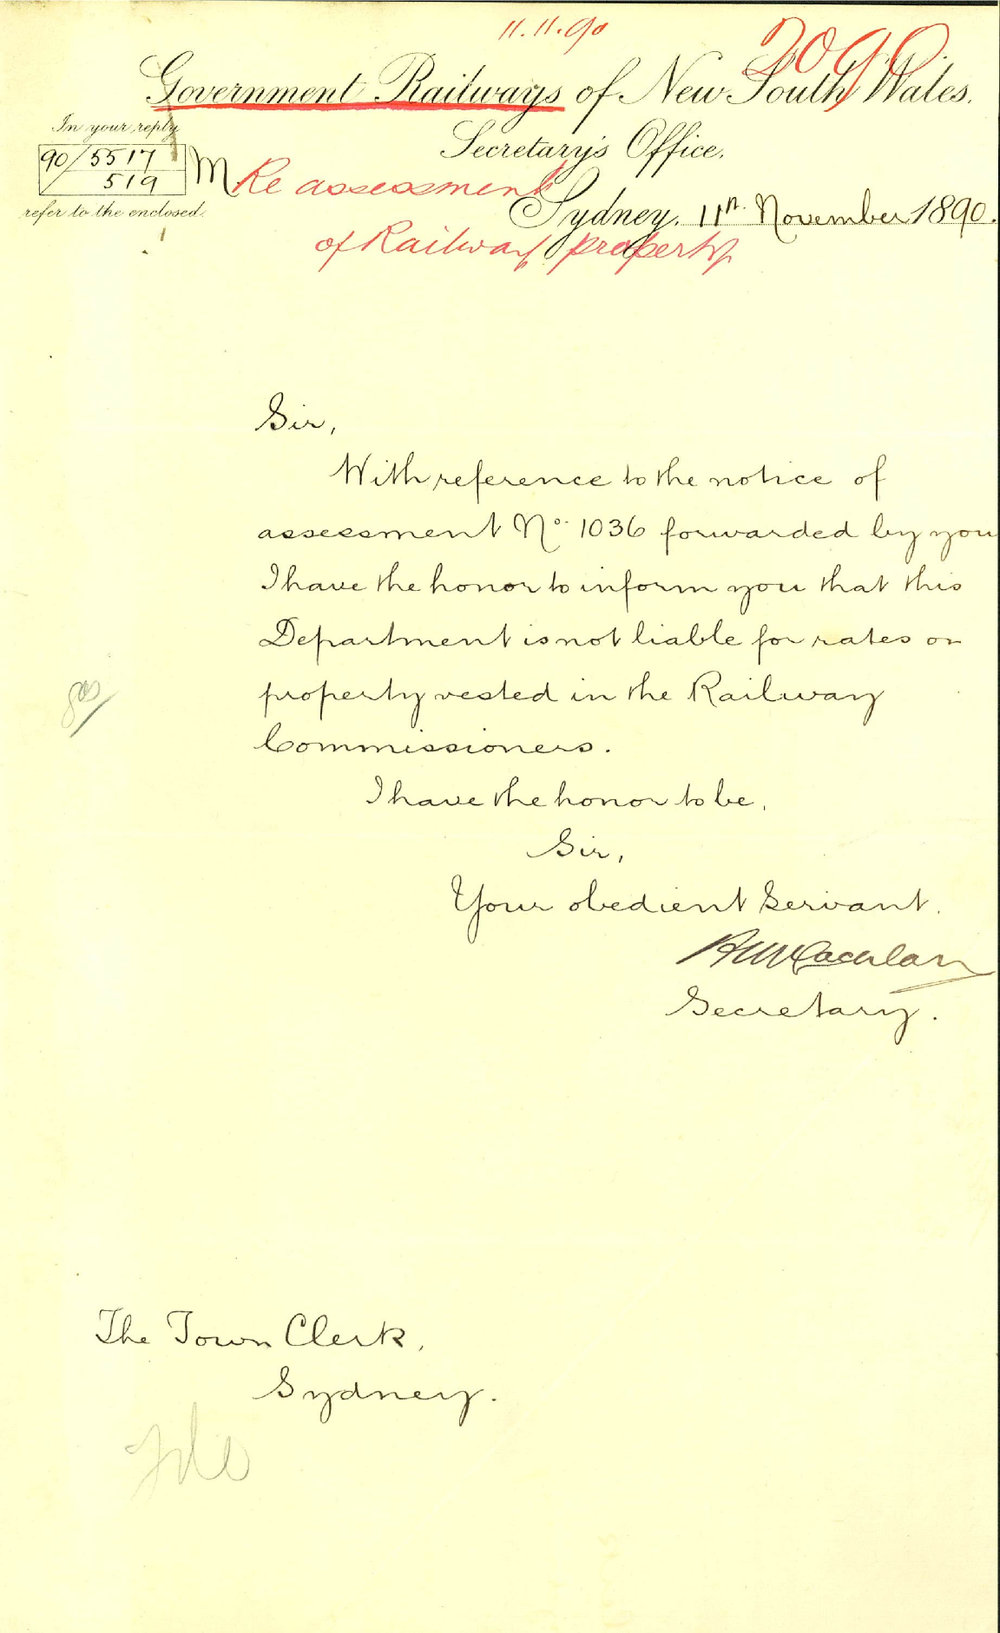 11.11.90
2090
Government Railways of New South Wales.
Secretary's Office.
In your reply
90/5517
519
M
refer to the enclosed.
Re assessment
of Railway property
Sydney, 11th November 1890.
Sir,
With reference to the notice of
assessment No. 1036 forwarded by you
I have the honor to inform you that this
Department is not liable for rates on
property vested in the Railway
Commissioners.
I have the honor to be,
Sir,
Your obedient Servant.
H McLachlan
Secretary.
The Town Clerk,
Sydney.